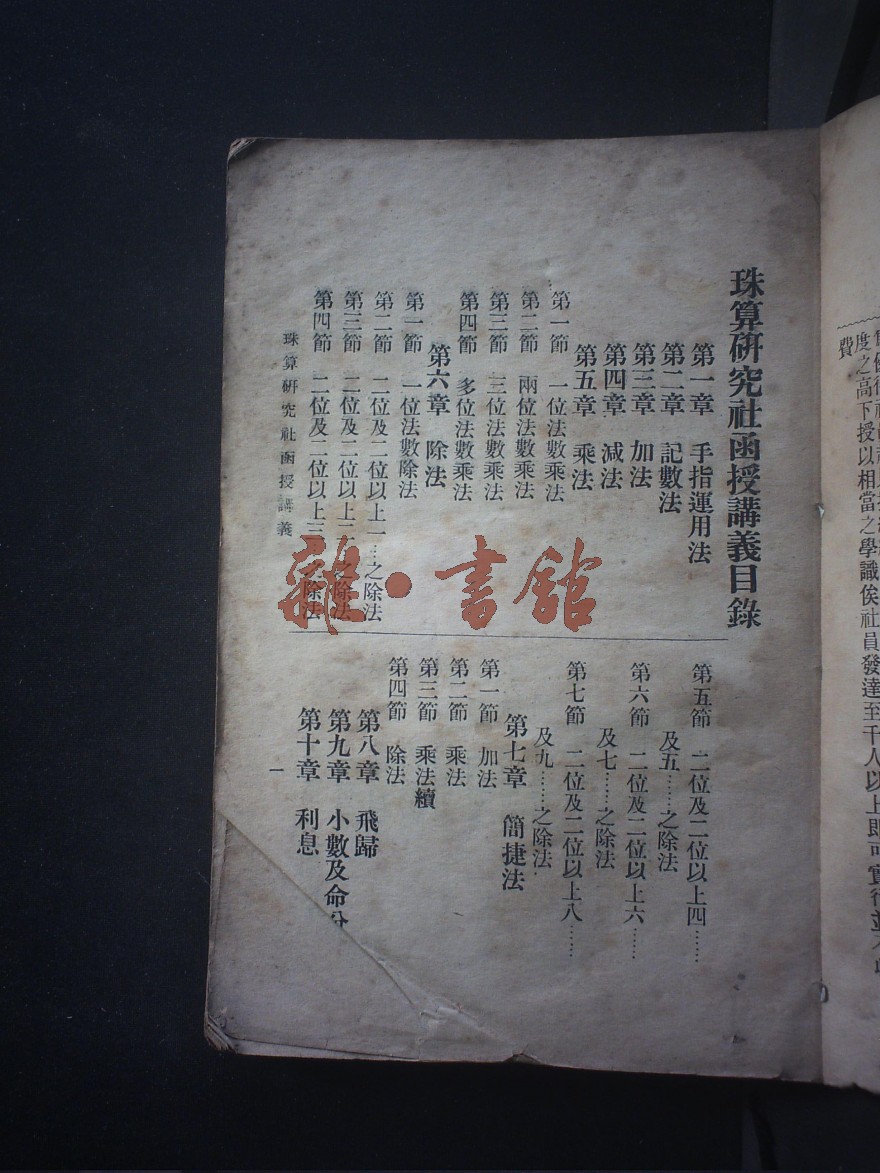 珠算研究社函授講義目錄
第一章 手指運用法
第二章 記數法
第三章 加法
第四章 減法
第五章 乘法
第一節 一位法數乘法
第二節 兩位法數乘法
第三節 三位法數乘法
第四節 多位法數乘法
第六章 除法
第一節 一位法數除法
第二節 二位及二位以上一…之除法
第三節 二位及二位以上二 之除法
第四節 二位及二位以上三 之除法
第五節 二位及二位以上四……
及五……之除法
第六節 二位及二位以上六……
及七……之除法
第七節 二位及二位以上八……
及九……之除法
第七章 簡捷法
第一節 加法
第二節 乘法
第三節 乘法續
第四節 除法
第八章 飛歸
第九章 小數及命分
第十章 利息
珠算研究社函授講義
一
雜·書館
度之高下授以相當之學識俟社員發達至千人以上即可實行並不
費